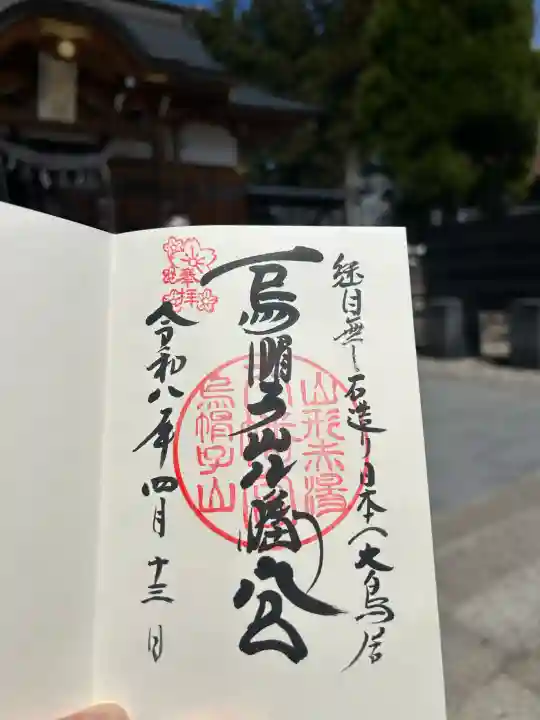 継目無し石造り日本一大鳥居
烏帽子山八幡宮
山形赤湯
烏帽子山
奉拝
令和八年四月十三日